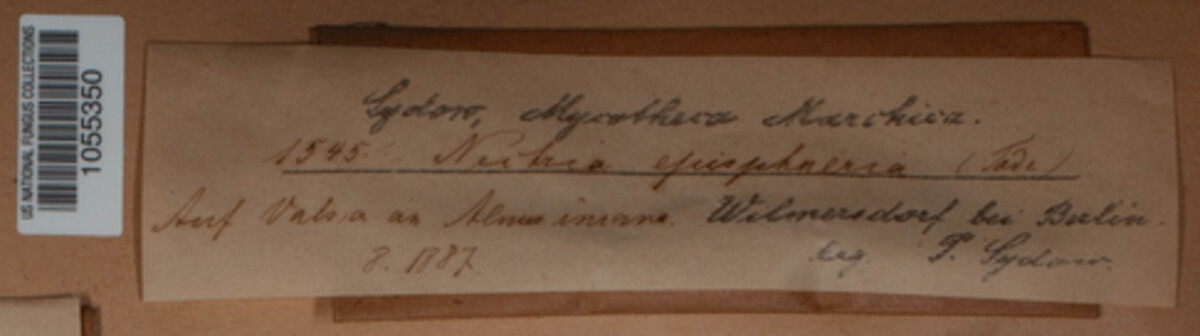 US NATIONAL FUNGUS COLLECTIONS
1055350
Sydow, Mycotheca Marchica.
1545. Nectria episphaeria (Tode)
Auf Valsa an Alnus incana. Wilmersdorf bei Berlin.
8. 1887. leg P. Sydow.